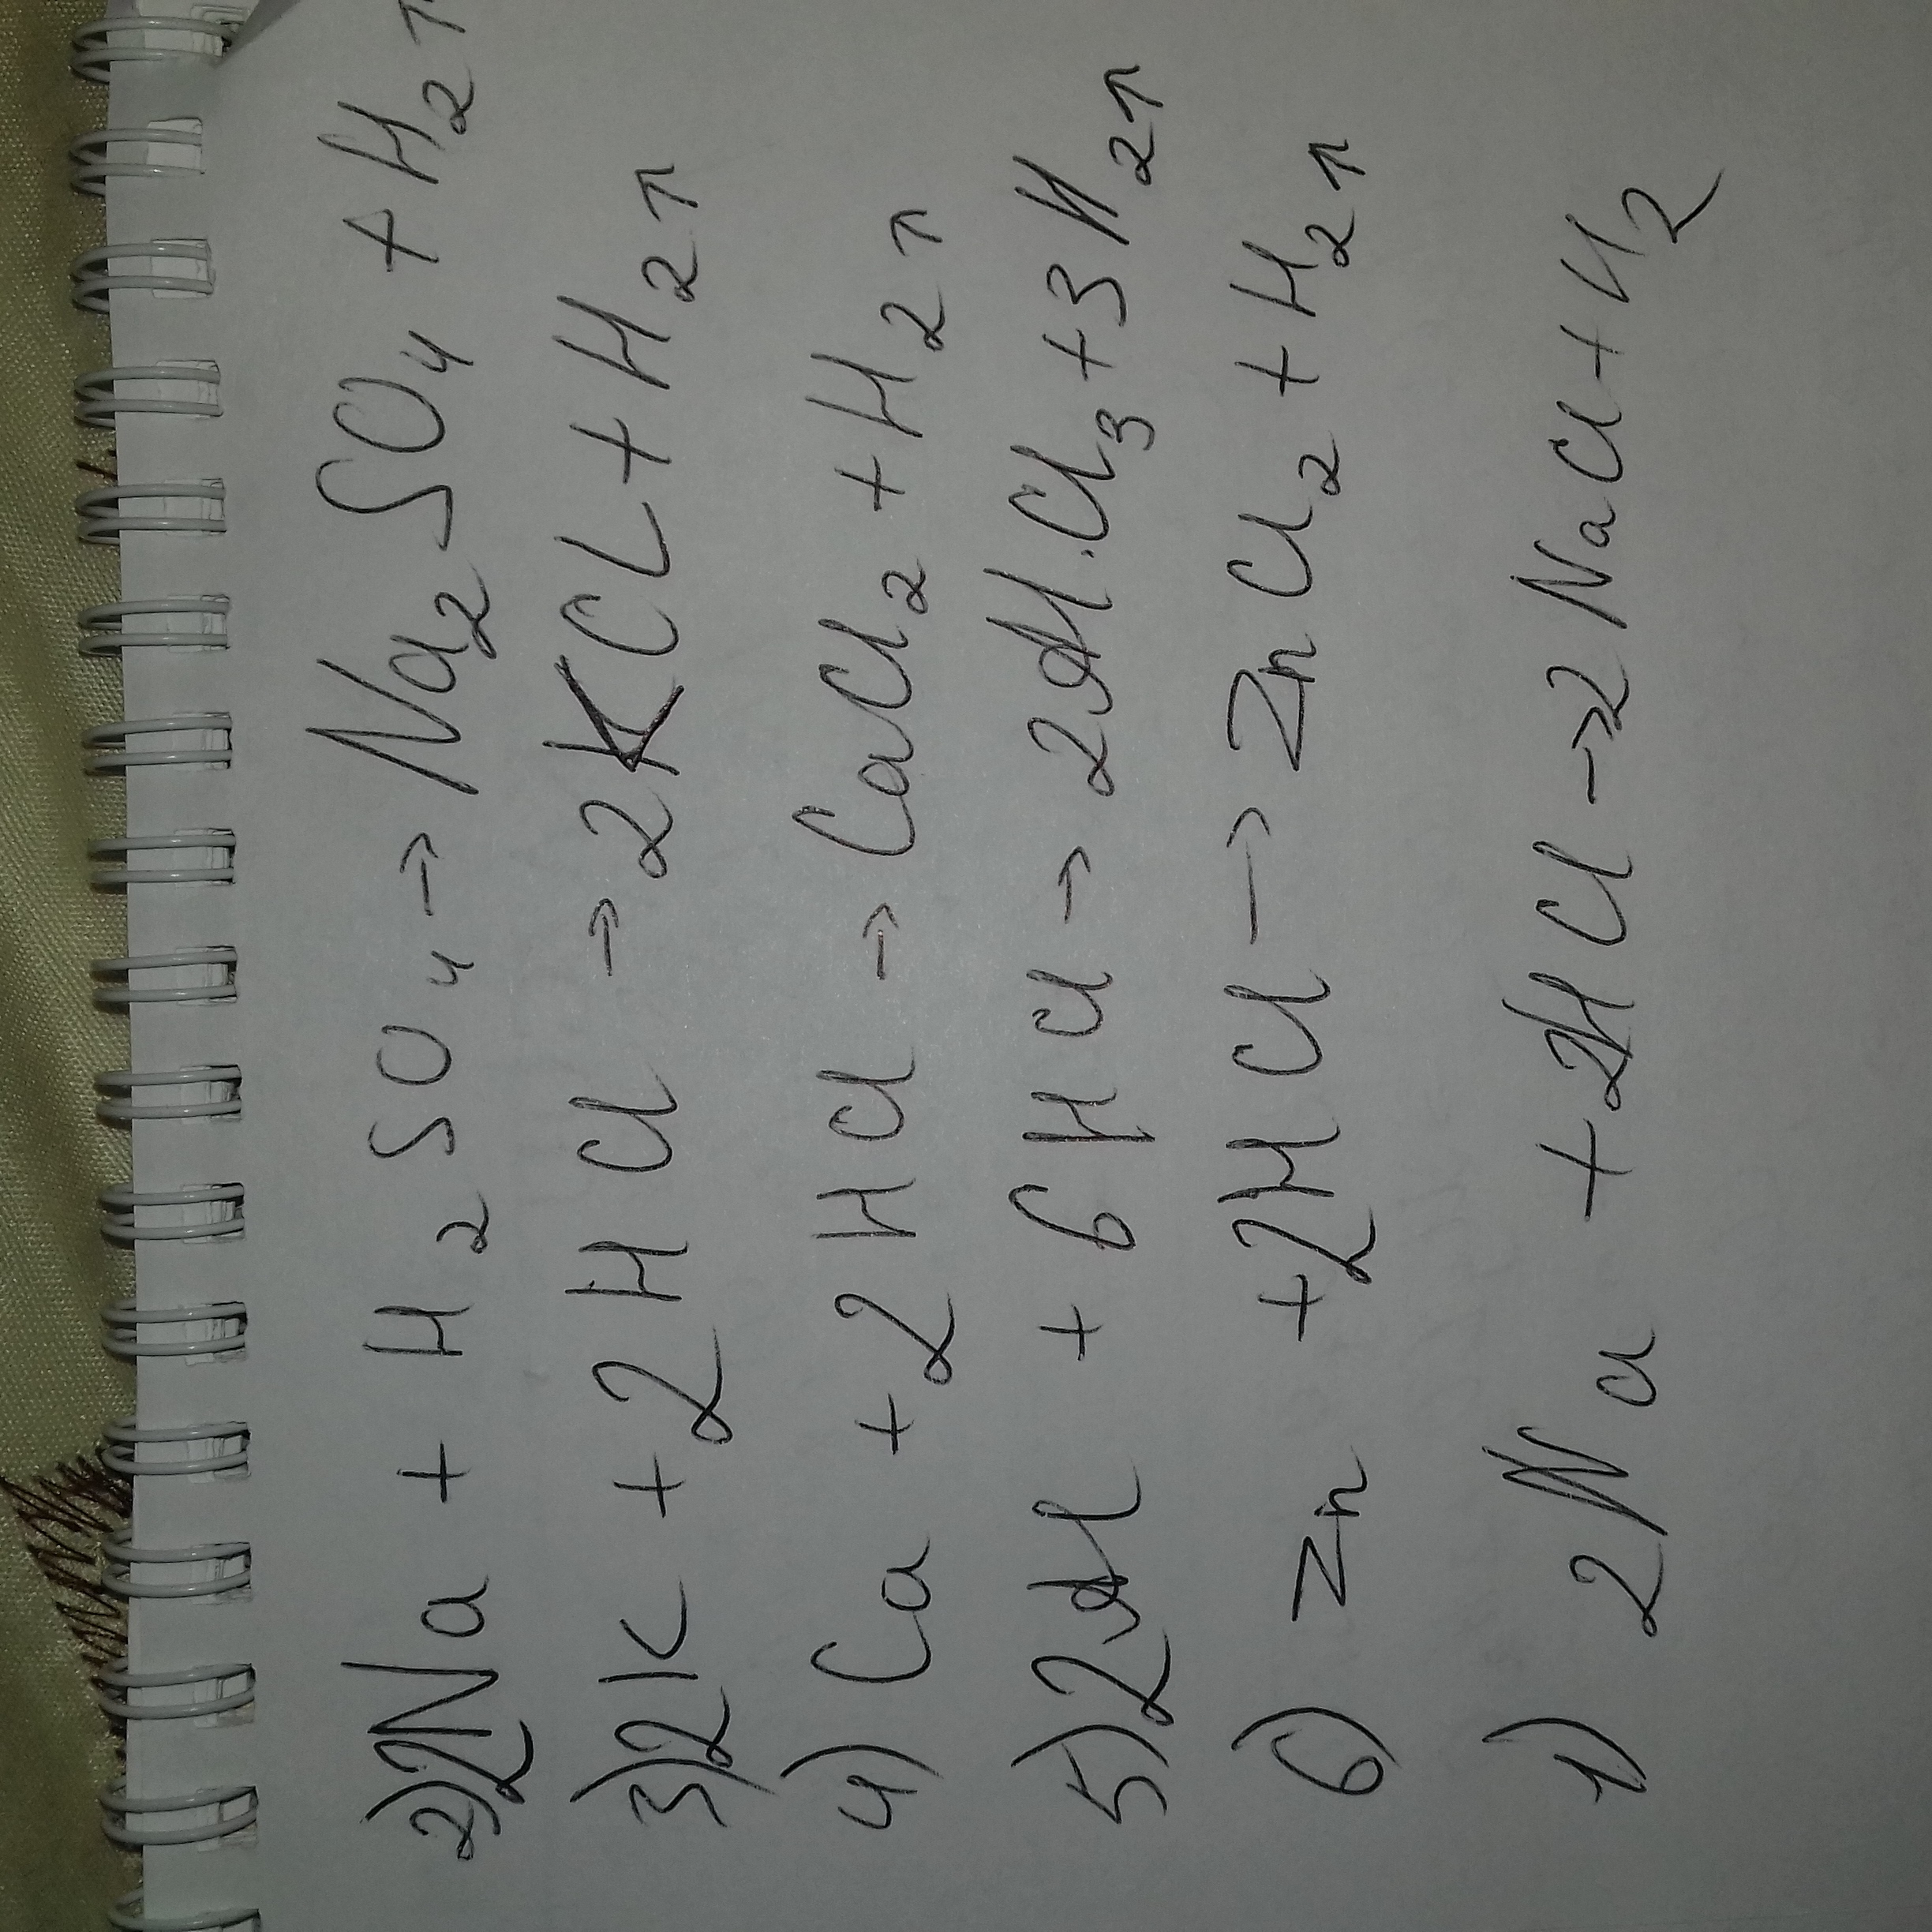 2) 2Na + H₂SO₄ → Na₂SO₄ + H₂↑
3) 2K + 2HCl → 2KCl + H₂↑
4) Ca + 2HCl → CaCl₂ + H₂↑
5) 2Al + 6HCl → 2Al.Cl₃ + 3H₂↑
6) Zn + 2HCl → ZnCl₂ + H₂↑
1) 2Na + 2HCl → 2NaCl + H₂